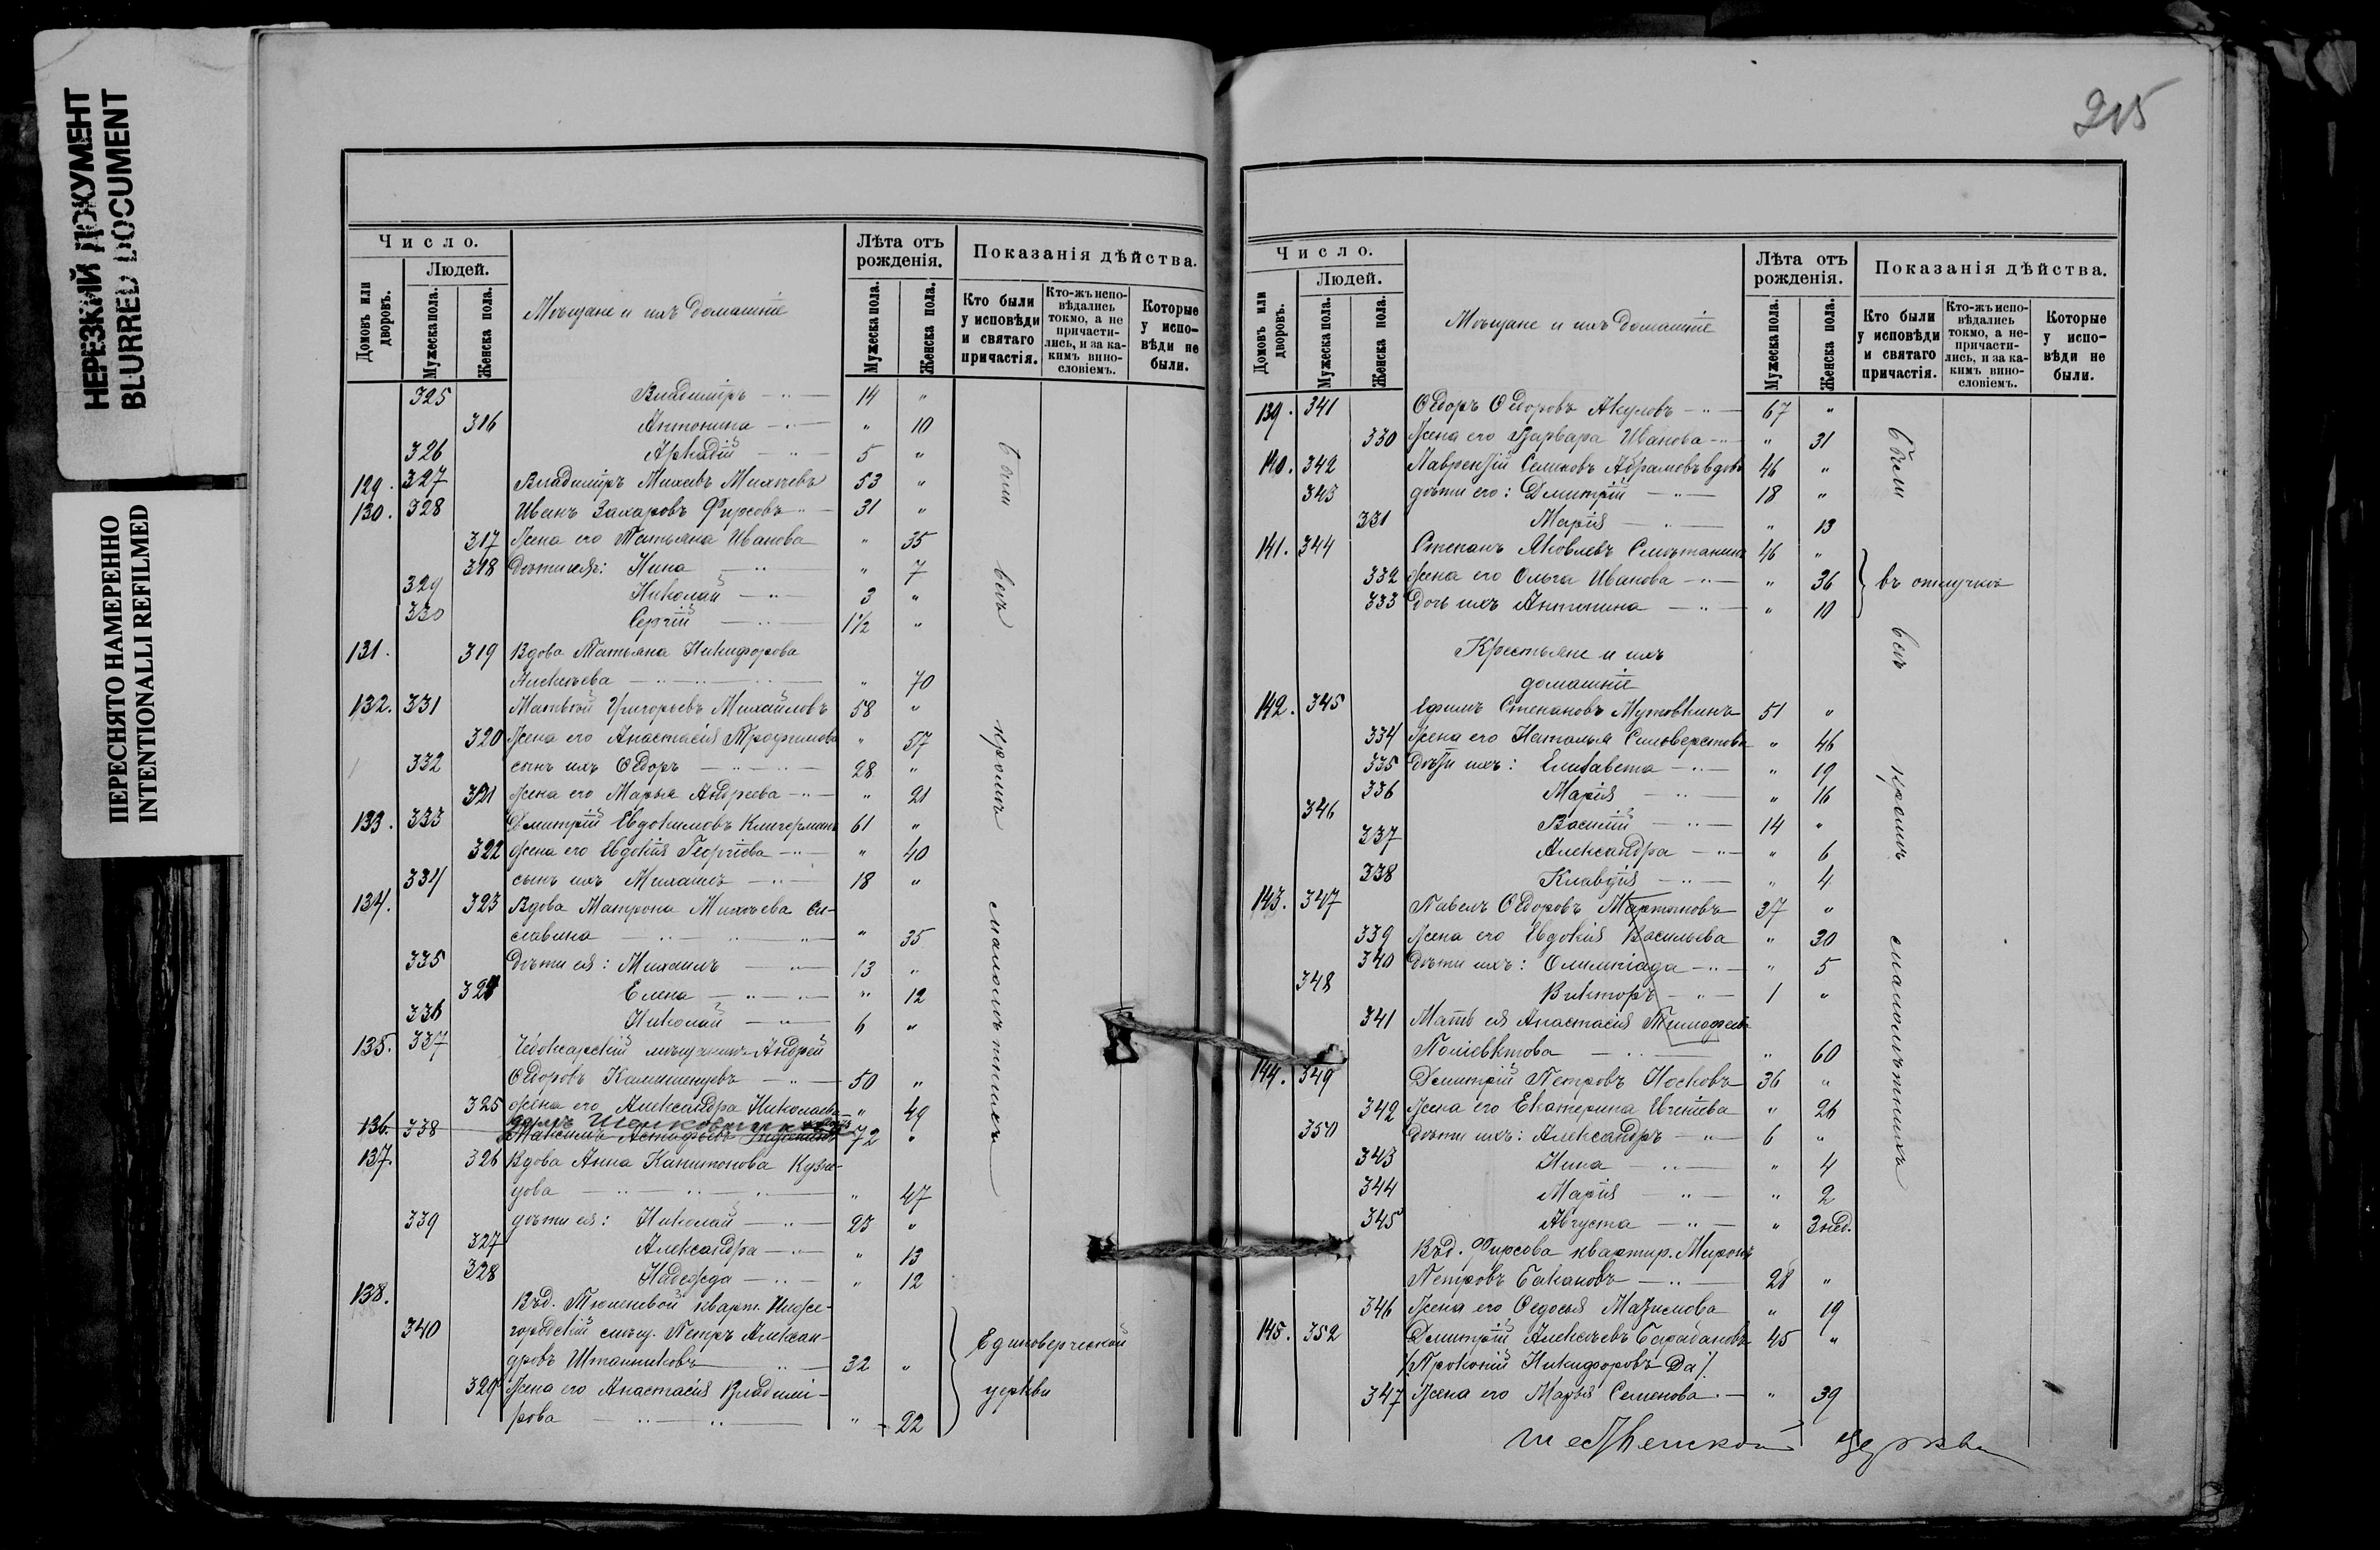 НЕРЕЗКИЙ ДОКУМЕНТ
BLURRED DOCUMENT
ПЕРЕСНЯТО НАМЕРЕННО
INTENTIONALLI REFILMED
Число.
Людей.
Домовъ или дворовъ.
Мужеска пола.
Женска пола.
Мѣщане и ихъ домашніе
Лѣта отъ рожденія.
Мужеска пола.
Женска пола.
Показанія дѣйства.
Кто были у исповѣди и святаго причастія.
Кто-жъ исповѣдались токмо, а не причастились, и за какимъ винословіемъ.
Которые у исповѣди не были.
325 Владиміръ 14 "
316 Антонина " 10
326 Аркадій 5 "
129. 327 Владиміръ Михеевъ Михѣевъ 53 "
130. 328 Иванъ Захаровъ Фирсовъ 31 "
317 Жена его Татьяна Иванова " 35
318 Дѣти ихъ: Нина " 7
329 Николай 3 "
330 Сергій 1½ "
131. 319 Вдова Татьяна Никифорова
Алексѣева " 70
132. 331 Матвѣй Григорьевъ Михайловъ 58 "
320 Жена его Анастасія Трофимова " 57
332 сынъ ихъ Ѳедоръ 28 "
321 Жена его Марья Андреева " 21
133. 333 Димитрій Евдокимовъ Клигерманъ 61 "
322 Жена его Евдокія Георгіева " 40
334 сынъ ихъ Михаилъ 18 "
134. 323 Вдова Матрона Михѣева Си-
славина " 35
335 Дѣти ея: Михаилъ 13 "
324 Елена " 12
336 Николай 6 "
135. 337 Чебокарскій мѣщанинъ Андрей
Ѳедоровъ Калашенцевъ 50 "
325 Жена его Александра Николаева " 49
136. 338 Максимъ 72 "
137. 326 Вдова Анна Капитонова Кузне-
цова " 47
339 дѣти ея: Николай 23 "
327 Александра " 13
328 Надежда " 12
138. Въ д. Тюленевой кварт. Ниже-
340 городскій мѣщ. Петръ Алексан-
дровъ Штанниковъ 32 "
329 Жена его Анастасія Владимі-
рова " 22
были всѣ кромѣ малолѣтнихъ
Единоверческой
церкви
215
Число.
Людей.
Домовъ или дворовъ.
Мужеска пола.
Женска пола.
Мѣщане и ихъ домашніе
Лѣта отъ рожденія.
Мужеска пола.
Женска пола.
Показанія дѣйства.
Кто были у исповѣди и святаго причастія.
Кто-жъ исповѣдались токмо, а не-причастились, и за какимъ винословіемъ.
Которые у исповѣди не были.
139. 341 Ѳедоръ Ѳедоровъ Акуловъ 67 "
330 Жена его Варвара Иванова " 31
140. 342 Лаврентій Семеновъ Абрамовъ вдовъ 46 "
343 дѣти его: Димитрій 18 "
331 Марія " 13
141. 344 Степанъ Яковлевъ Смѣтанинъ 46 "
332 Жена его Ольга Иванова " 36
333 Дочь ихъ Антонина " 10
въ отлучкѣ
Крестьяне и ихъ
домашніе
142. 345 Ефимъ Степановъ Мутовкинъ 51 "
334 Жена его Наталья Селиверстова " 46
335 Дѣти ихъ: Елизавета " 19
336 Марія " 16
346 Василій 14 "
337 Александра " 6
338 Клавдія " 4
143. 347 Павелъ Ѳедоровъ Мартыновъ 37 "
339 Жена его Евдокія Васильева " 30
340 Дѣти ихъ: Олимпіада " 5
348 Викторъ 1 "
341 Мать ея Анастасія Тимофеева
Поліевктова " 60
144. 349 Димитрій Петровъ Носковъ 36 "
342 Жена его Екатерина Игнтіева " 26
350 Дѣти ихъ: Александръ 6 "
343 Нина " 4
344 Марія " 2
345 Августа " 3 нед.
Въ д. Фирсова квартир. Миронъ
Петровъ Бакановъ 28 "
346 Жена его Ѳедосья Максимова " 19
145. 352 Димитрій Алексѣевъ Барабановъ 45 "
/Прокопій Никифоровъ Да/.
347 Жена его Марья Семенова " 39
были всѣ кромѣ малолѣтнихъ
церкви